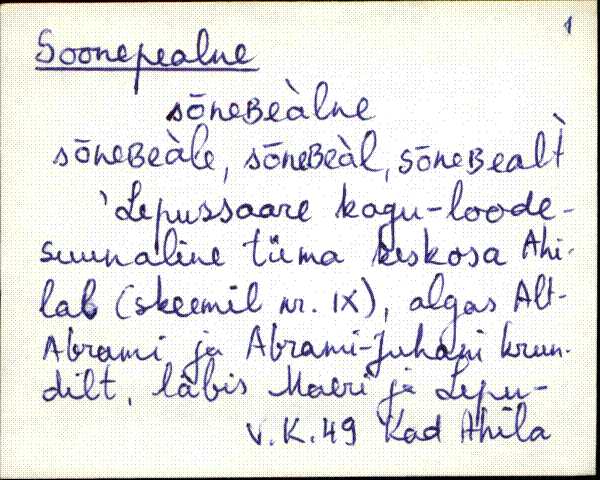 1
Soonepealne
sōneʙeàlne
sōneʙeàle, sōneʙeàl, sōneʙealt̀
'Lepussaare kagu-loode-
suunaline tüma keskosa Ahi-
lab (skeemil nr. IX), algas Alt-
Abrami ja Abrami-Juhani krun-
dilt, läbis Maeri ja Lepu-
V.K.49 Kad Ahila